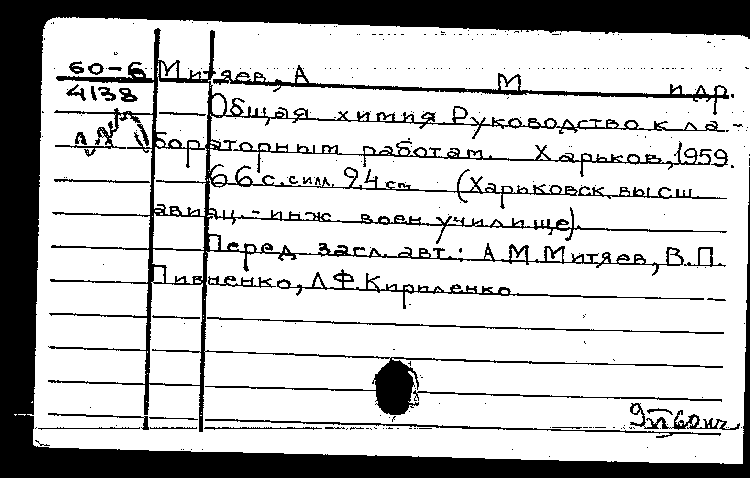 60-6 Митяев, А М и др.
4138
Общая химия Руководство к ла-
бораторным работам. Харьков, 1959.
66 с. с илл. 24 см (Харьковск. высш
авиац.-инж воен училище).
Перед загл. авт.: А.М.Митяев, В.П.
Пивненко, Л.Ф.Кириленко
9 VI 60